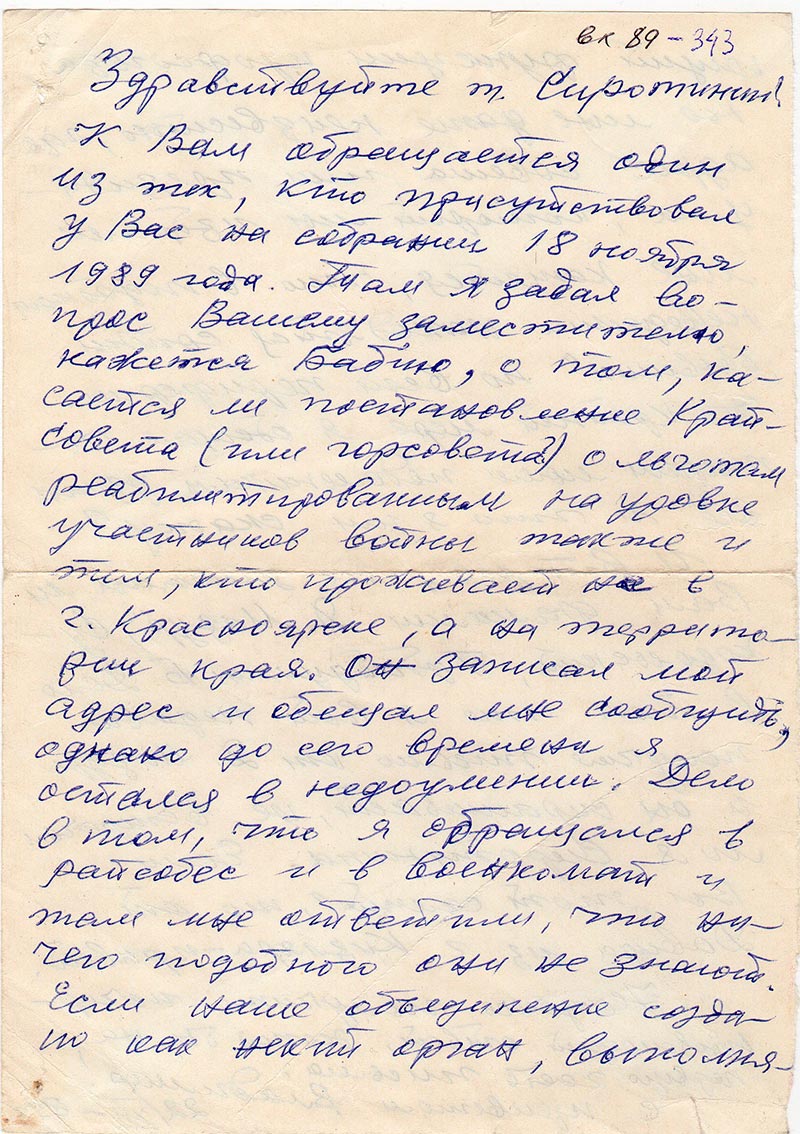 вк 89-343
Здравствуйте т. Сиротинин!
К Вам обращается один
из тех, кто присутствовал
у Вас на собрании 18 ноября
1989 года. Там я задал во-
прос Вашему заместителю,
кажется Бабию, о том, ка-
сается ли постановление Край-
совета (или горсовета?) о льготах
реабилитированным на уровне
участников войны также и
тем, кто проживает не в
г. Красноярске, а на террито-
рии края. Он записал мой
адрес и обещал мне сообщить,
однако до сего времени я
остался в недоумении. Дело
в том, что я обращался в
райсобес и в военкомат и
там мне ответили, что ни-
чего подобного они не знают.
Если наше объединение созда-
но как некий орган, выполня-